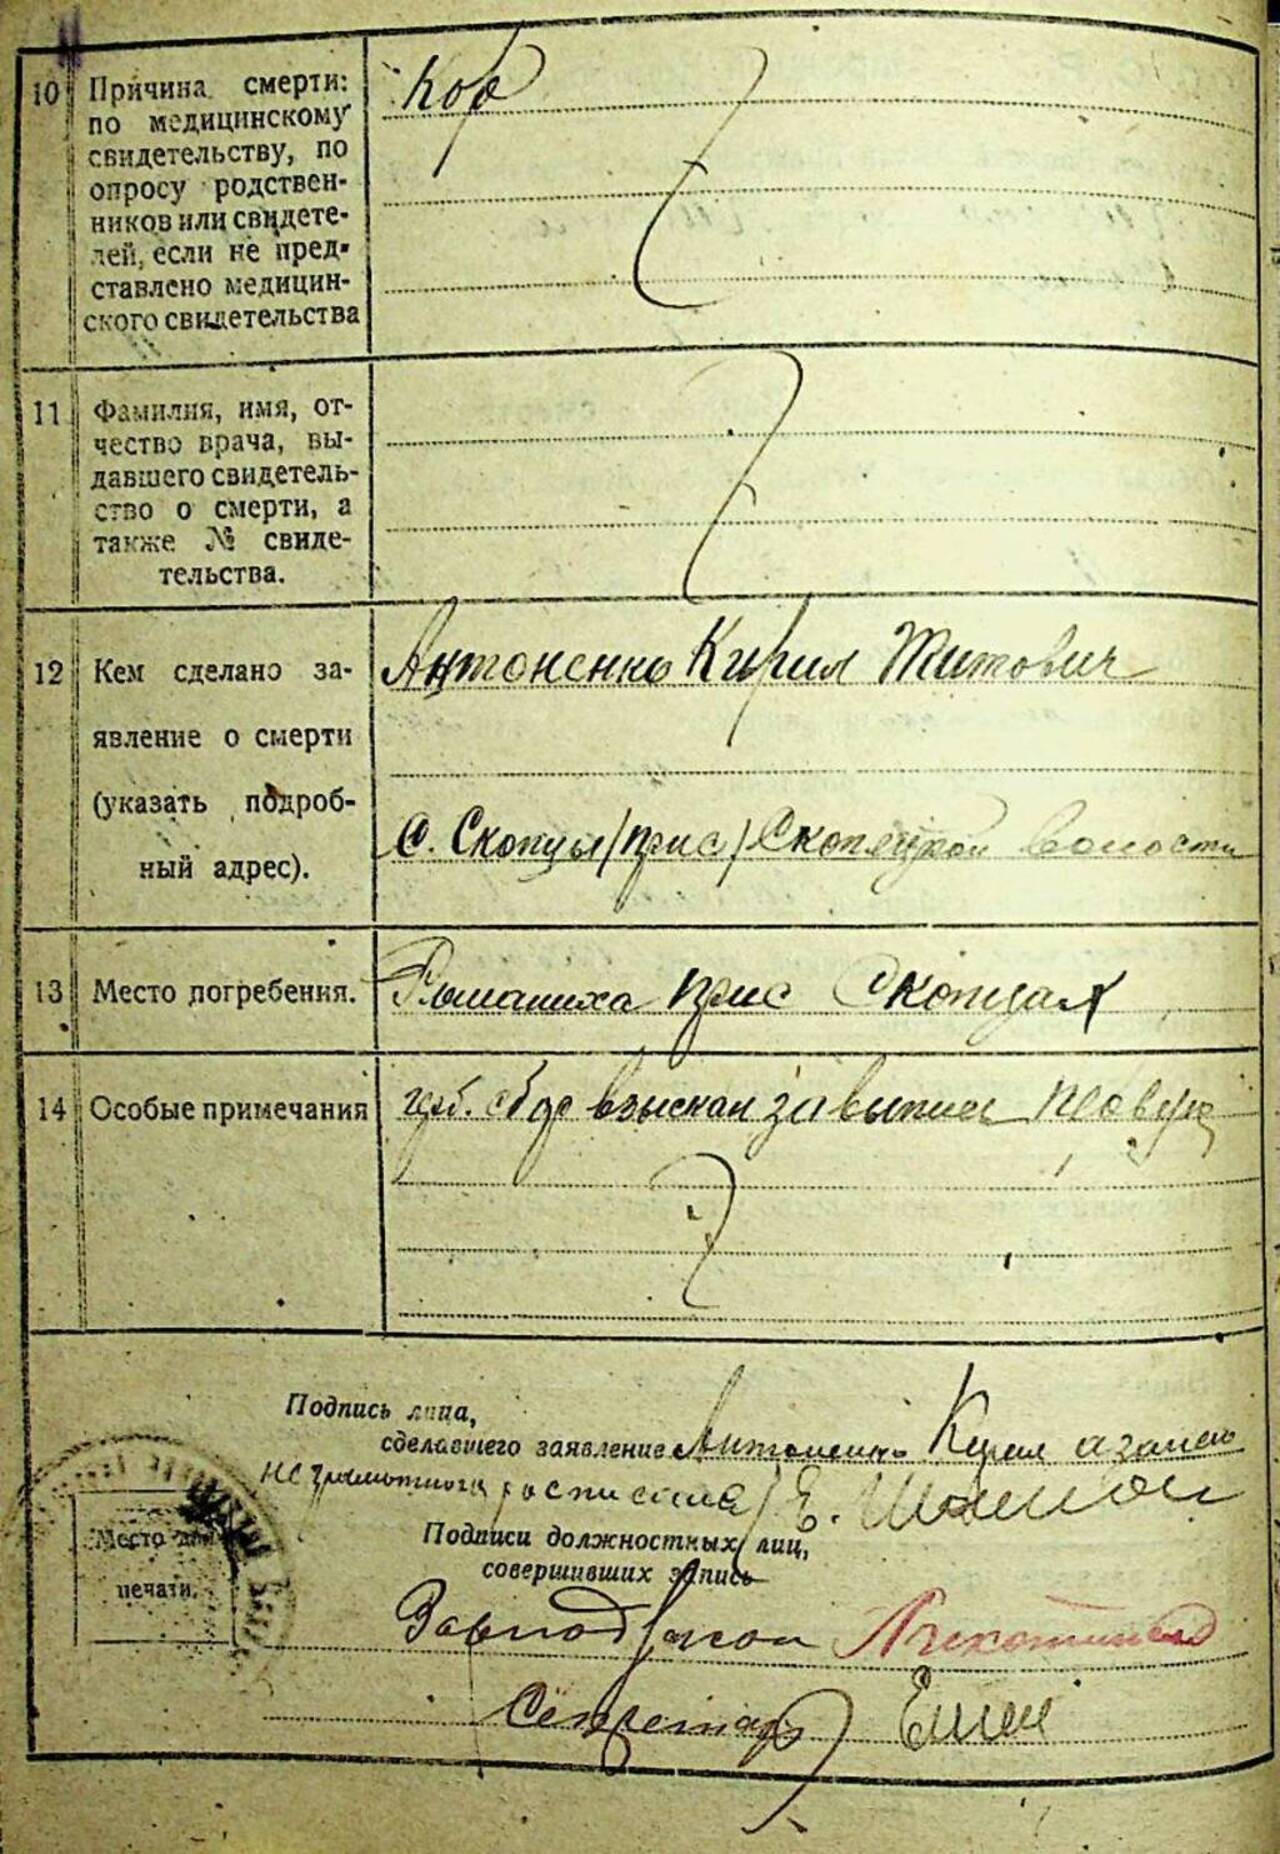 10 Причина смерти:
по медицинскому
свидетельству, по
опросу родствен-
ников или свидете-
лей, если не пред-
ставлено медицин-
ского свидетельства
Кор
11 Фамилия, имя, от-
чество врача, вы-
давшего свидетель-
ство о смерти, а
также № свиде-
тельства.
12 Кем сделано за-
явление о смерти
(указать подроб-
ный адрес).
Антоненко Кирил Титович
С. Скопцы /прис/ Скопецкой волости
13 Место погребения.
прис Скопцах
14 Особые примечания
герб. сбор взыскан за выписи
Подпись лица,
сделавшего заявление Антоненко Кирил а за него
не грамотного росписался / Е.
Подписи должностных лиц,
совершивших запись
Завподзагсом
Секретарь
Место для
печати.